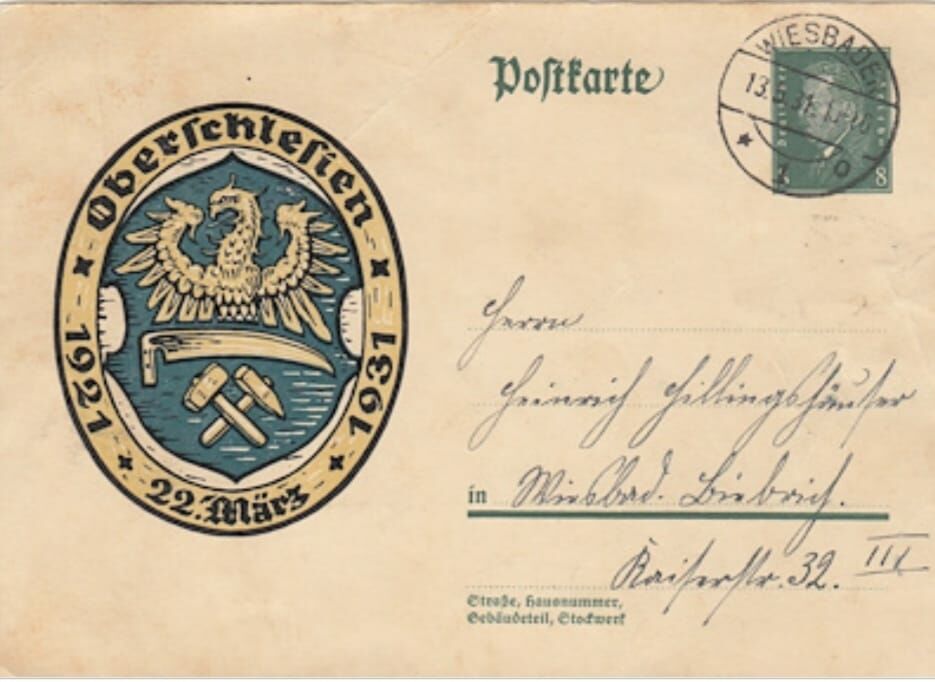 Postkarte
WIESBADEN
8
Oberschlesien
1921
1931
22. März
Herrn
Heinrich Hillingshäuser
in Wiesbad. Biebrich.
Kaiserstr. 32. III
Straße, Hausnummer,
Gebäudeteil, Stockwerk